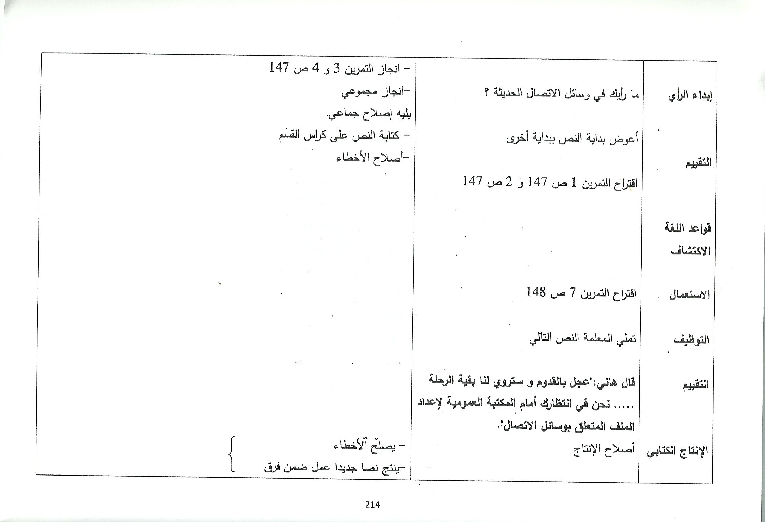 - انجاز التمرين 3 و 4 ص 147
إبداء الرأي
ما رأيك في وسائل الاتصال الحديثة ؟
-انجاز مجموعي
يليه إصلاح جماعي.
أعوض بداية النص ببداية أخرى
- كتابة النص على كراس القسم
التقييم
-أصلاح الأخطاء
اقتراح التمرين 1 ص 147 و 2 ص 147
قواعد اللغة
الاكتشاف
الاستعمال
اقتراح التمرين 7 ص 148
التوظيف
تملي المعلمة النص التالي
التقييم
قال هاني:"عجل بالقدوم و ستروي لنا بقية الرحلة
..... نحن في انتظارك أمام المكتبة العمومية لإعداد
الملف المتعلق بوسائل الاتصال".
الإنتاج الكتابي
أصلاح الإنتاج
- يصلح الأخطاء
-ينتج نصا جديدا عمل ضمن فرق
214